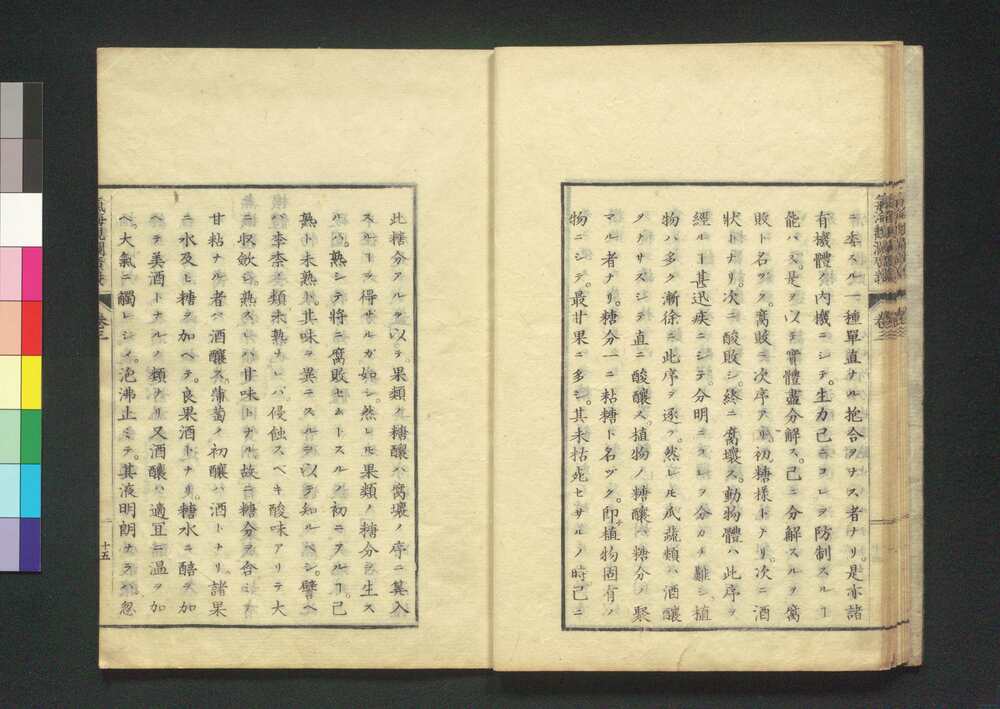 ニ奉スル一種單直ナル抱合ヲナス者ナリ。是亦諸
有機體ノ内機ニシテ。生力己ニコレヲ防制スルヿ
能ハス。是ヲ以テ實體盡分解ス。己ニ分解スルヲ腐
敗ト名ヅク。腐敗ニ次序アリ。初糖樣トナリ。次ニ酒
狀トナリ。次ニ酸敗シ。終ニ腐壞ス。動物體ハ此序ヲ
經ルヿ甚迅疾ニシテ。分明ニコレヲ分カチ難シ。植
物ハ多ク漸徐ニ此序ヲ逐フ。然レ𪜈瓜蔬類ハ酒釀
ヲナサスシテ直ニ酸釀ス。植物ノ糖釀ハ糖分ノ聚
マル者ナリ。糖分一ニ粘糖ト名ヅク。卽植物固有ノ
物ニシテ。最甘果ニ多シ。其未枯死セサルノ時己ニ
此糖分アルヲ以テ。果類ノ糖釀ハ腐壞ノ序ニ算入
スルヿヲ得サルガ如シ。然レ𪜈果類ノ糖分ヲ生ス
ルハ。熟シテ將ニ腐敗セムトスルノ初ニアルヿ。己
熟ト未熟ト其味ヲ異ニスルヲ以テ知ルベシ。譬ヘ
ハ李柰ノ類未熟ナレハ。侵蝕スベキ酸味アリテ大
ニ收斂シ。熟スレハ甘味トナル故ニ糖分ヲ含ミテ
甘粘ナル者ハ酒釀ス。蒲萄ノ初釀ハ酒トナリ。諸果
ニ水及ヒ糖ヲ加ヘテ。良果酒トナリ。糖水ニ醅ヲ加
ヘテ美酒トナルノ類ナリ。又酒釀ハ適冝ニ温ヲ加
ヘ。大氣ニ觸レシメ。泡沸止ミテ。其液明朗ナラハ。忽
氣海觀瀾廣義
卷三
十五